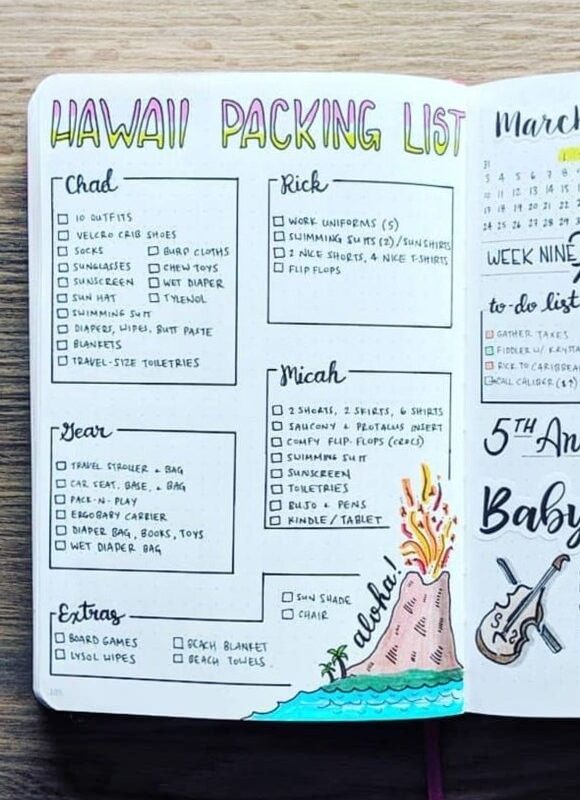 HAWAII PACKING LIST
Chad
10 OUTFITS
VELCRO CRIB SHOES
SOCKS
SUNGLASSES
SUNSCREEN
SUN HAT
BURP CLOTHS
CHEW TOYS
WET DIAPER
TYLENOL
SWIMMING SUIT
DIAPERS, WIPES, BUTT PASTE
BLANKETS
TRAVEL-SIZE TOILETRIES
Rick
WORK UNIFORMS (5)
SWIMMING SUITS (2)/SUNSHIRTS
2 NICE SHORTS, 4 NICE T-SHIRTS
FLIP FLOPS
Micah
2 SHORTS, 2 SKIRTS, 6 SHIRTS
SAUCONY & PROTALUS INSERT
COMFY FLIP-FLOPS (CROCS)
SWIMMING SUIT
SUNSCREEN
TOILETRIES
BUJO & PENS
KINDLE / TABLET
Gear
TRAVEL STROLLER & BAG
CAR SEAT, BASE, & BAG
PACK-N-PLAY
ERGOBABY CARRIER
DIAPER BAG, BOOKS, TOYS
WET DIAPER BAG
Extras
BOARD GAMES
LYSOL WIPES
BEACH BLANKET
BEACH TOWELS
SUN SHADE
CHAIR
aloha!
March
31
3 4 5 6 7 8
10 11 12 13 14 15
17 18 19 20 21 22
24 25 26 27 28 29
WEEK NINE
to-do list
GATHER TAXES
FIDDLER W/
RICK TO
CALL CALIBER
5TH
Baby